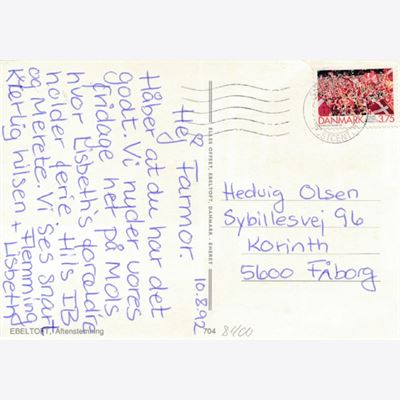 10.8.92
Hej Farmor.
Håber at du har det
godt. Vi nyder vores
fridage her på Mols
hvor Lisbeth's forældre
holder ferie. Hils IB
og Merete. Vi ses snart
Kærlig hilsen Flemming
+ Lisbeth
Hedvig Olsen
Sybillesvej 96
Korinth
5600 Fåborg
DANMARK 3.75
ELLES OFFSET, EBELTOFT, DANMARK - ENERET
EBELTOFT, Aftenstemning
704
8400